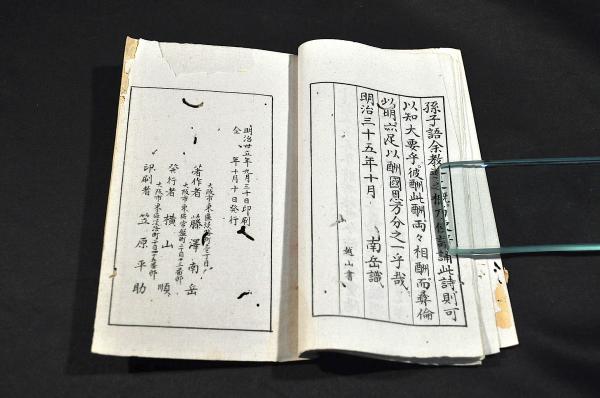 孫子語余教
誦此詩則可
以知大要乎彼酬此酬両々相酬而彝倫
以明亦足以酬國恩万分之一乎哉
明治三十五年十月 南岳識
越山書
明治廿五年九月三十日印刷
仝 年十月十日発行
大阪市東區淡路町
著作者 藤澤南岳
大阪市東區常盤町
発行者 横山順
大阪市東區淡路町
印刷者 笠原平助